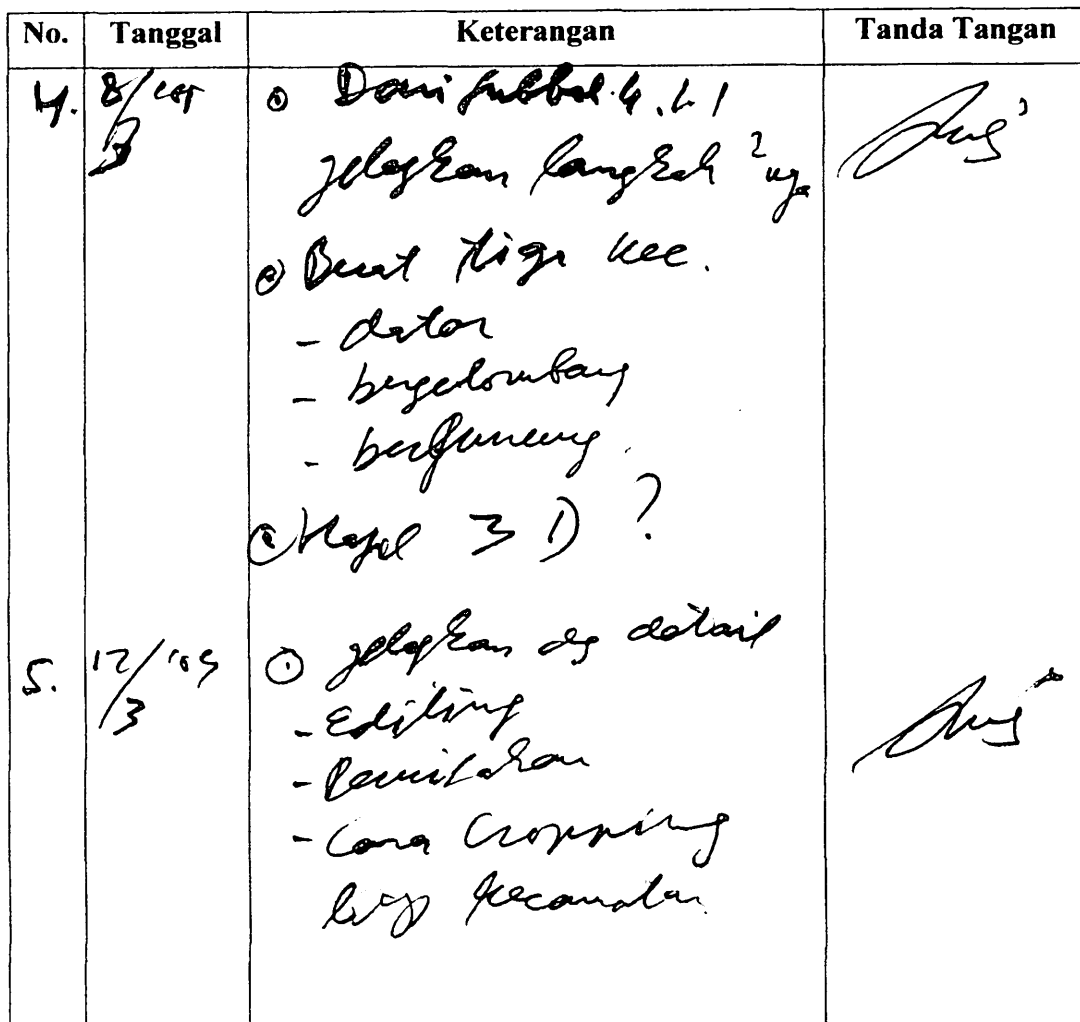 No. Tanggal Keterangan Tanda Tangan
4. 8/3 '05 Dari subbab 4.1.1
jelaskan langkah ²nya
Buat tiga kec.
- datar
- bergelombang
- bergunung
Hasil 3D ?
5. 12/3 '05 jelaskan dg detail
- Editing
- Pemisahan
- Cara Cropping
kecamatan